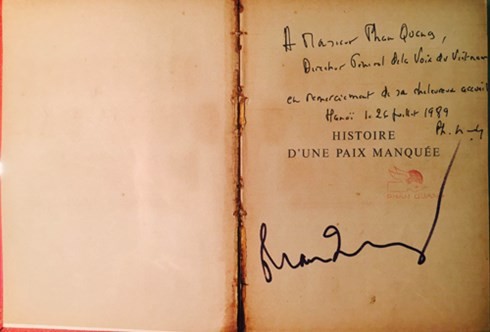 A Monsieur Phan Quang,
Directeur Général de la Voix du Vietnam
en remerciement de sa chaleureux accueil
Hanoï le 26 juillet 1989
Ph.
HISTOIRE
D'UNE PAIX MANQUÉE